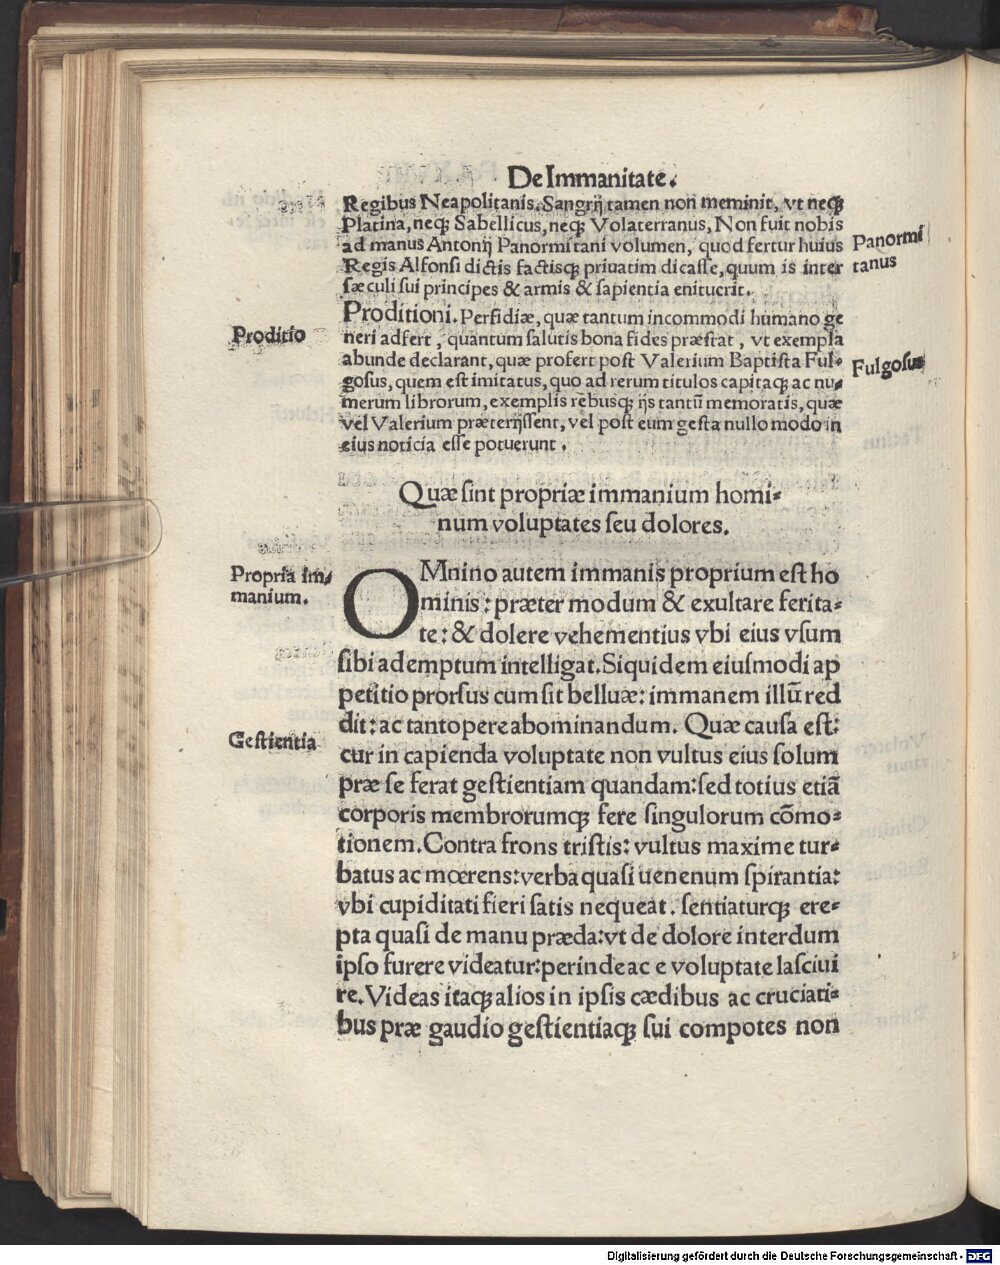 De Immanitate.
Regibus Neapolitanis. Sangrij tamen non meminit, vt neqꝫ
Platina, neqꝫ Sabellicus, neqꝫ Volaterranus, Non fuit nobis
ad manus Antonij Panormitani volumen, quod fertur huius
Panormi
Regis Alfonsi dictis factisqꝫ priuatim dicasse, quum is inter
tanus
sæculi sui principes & armis & sapientia enituerit.
Proditioni. Perfidiæ, quæ tantum incommodi humano ge
Proditio
neri adfert, quantum salutis bona fides præstat, vt exempla
abunde declarant, quæ profert post Valerium Baptista Ful⸗
Fulgosus
gosus, quem est imitatus, quo ad rerum titulos capitaqꝫ ac nu⸗
merum librorum, exemplis rebusqꝫ ijs tantū memoratis, quæ
vel Valerium præterijssent, vel post eum gesta nullo modo in
eius noticia esse potuerunt.
Quæ sint propriæ immanium homi⸗
num voluptates seu dolores.
Propria im⸗
manium.
OMnino autem immanis proprium est ho
minis: præter modum & exultare ferita⸗
te: & dolere vehementius vbi eius vsum
sibi ademptum intelligat. Siquidem eiusmodi ap
petitio prorsus cum sit belluæ: immanem illū red
dit: ac tantopere abominandum. Quæ causa est:
Gestientia
cur in capienda voluptate non vultus eius solum
præ se ferat gestientiam quandam: sed totius etiā
corporis membrorumqꝫ fere singulorum cōmo⸗
tionem. Contra frons tristis: vultus maxime tur⸗
batus ac mœrens: verba quasi uenenum spirantia:
vbi cupiditati fieri satis nequeat. sentiaturqꝫ ere⸗
pta quasi de manu præda: vt de dolore interdum
ipso furere videatur: perinde ac e voluptate lasciui
re. Videas itaqꝫ alios in ipsis cædibus ac cruciati⸗
bus præ gaudio gestientiaqꝫ sui compotes non
Digitalisierung gefördert durch die Deutsche Forschungsgemeinschaft - DFG